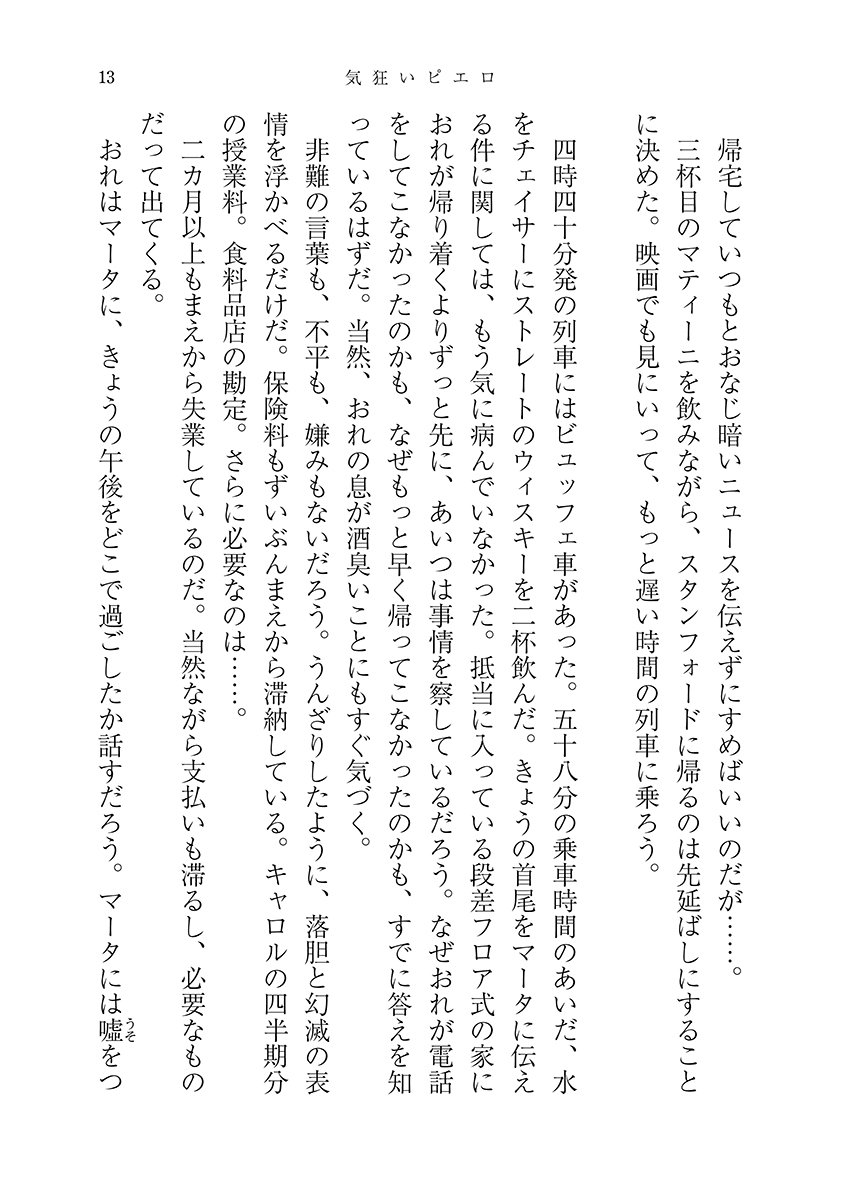 13
気狂いピエロ
帰宅していつもとおなじ暗いニュースを伝えずにすめばいいのだが……。
三杯目のマティーニを飲みながら、スタンフォードに帰るのは先延ばしにすること
に決めた。映画でも見にいって、もっと遅い時間の列車に乗ろう。
四時四十分発の列車にはビュッフェ車があった。五十八分の乗車時間のあいだ、水
をチェイサーにストレートのウィスキーを二杯飲んだ。きょうの首尾をマータに伝え
る件に関しては、もう気に病んでいなかった。抵当に入っている段差フロア式の家に
おれが帰り着くよりずっと先に、あいつは事情を察しているだろう。なぜおれが電話
をしてこなかったのかも、なぜもっと早く帰ってこなかったのかも、すでに答えを知
っているはずだ。当然、おれの息が酒臭いことにもすぐ気づく。
非難の言葉も、不平も、嫌みもないだろう。うんざりしたように、落胆と幻滅の表
情を浮かべるだけだ。保険料もずいぶんまえから滞納している。キャロルの四半期分
の授業料。食料品店の勘定。さらに必要なのは……。
二カ月以上もまえから失業しているのだ。当然ながら支払いも滞るし、必要なもの
だって出てくる。
おれはマータに、きょうの午後をどこで過ごしたか話すだろう。マータには嘘をつ
うそ